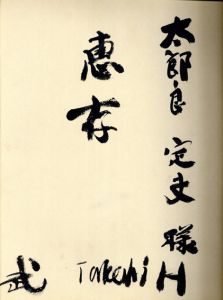 太郎良 定夫 様
恵存
武 Takehi H